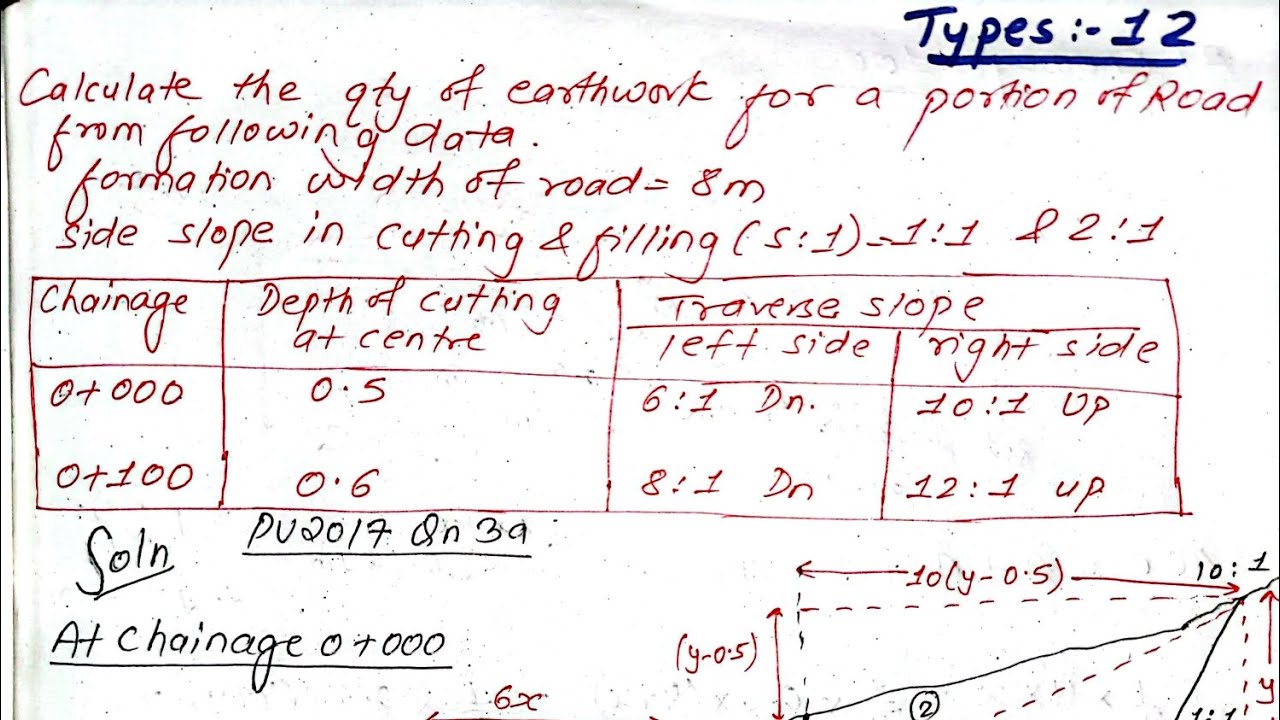 Types:-12
Calculate the qty of earthwork for a portion of Road
from following data.
formation width of road = 8m
side slope in cutting & filling (S:1)=1:1 & 2:1
Chainage Depth of cutting at centre Traverse slope
left side right side
0+000 0.5 6:1 Dn. 10:1 Up
0+100 0.6 8:1 Dn 12:1 up
Soln PU2017 Qn 3a
10(y-0.5) 10:1
At chainage 0+000
(y-0.5)
6x
y
2
1:1